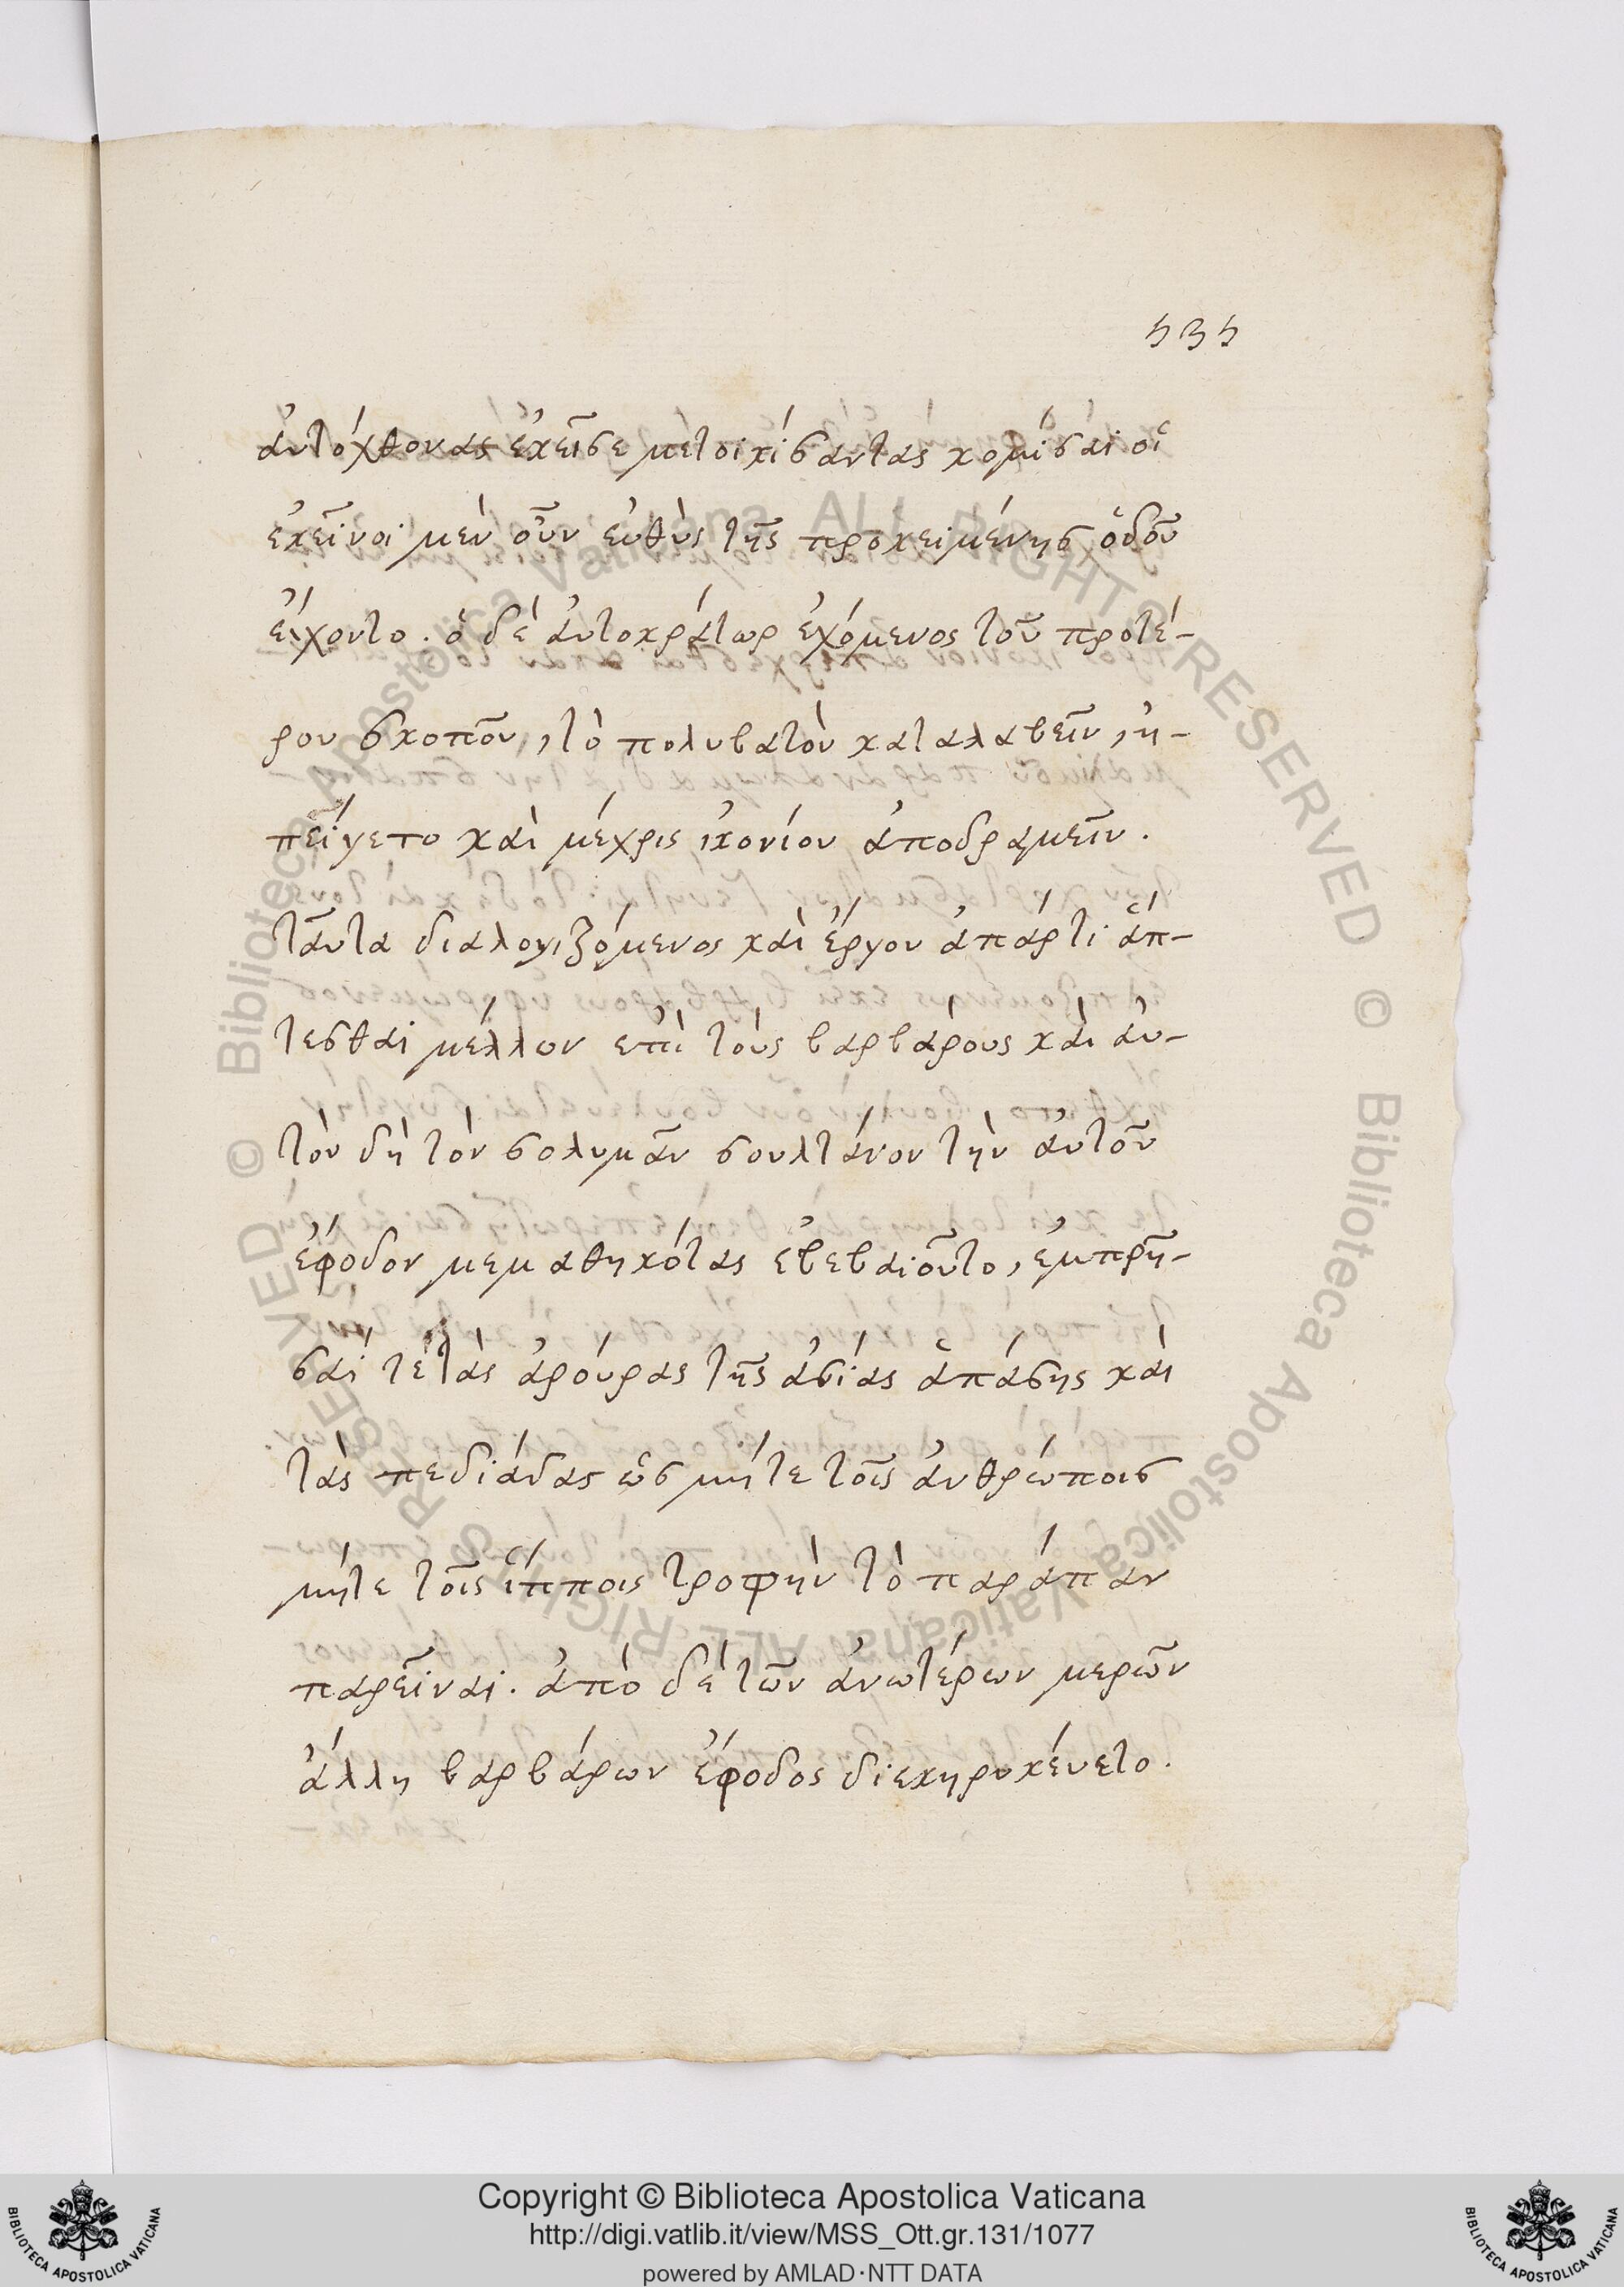 535
ἀυτόχθονας ἐκεῖσε μετοικίσαντας κομίσαι οἱ
ἐκεῖνοι μὲν οὖν ευθὺς τῆς προκειμένης ὁδοῦ
εἴχοντο. ὁ δὲ ἀυτοκράτωρ ἐχόμενος τοῦ προτέ-
ρου σκοποῦ, τὸ πολυβατὸν καταλαβεῖν, ἠ-
πείγετο καὶ μέχρις ἰκονίου ἀποδραμεῖν.
ταῦτα διαλογιζόμενος καὶ ἔργου ἀπάρτι ἅπ-
τεσθαι μέλλων επὶ τοὺς βαρβάρους καὶ ἀυ-
τὸν δὴ τὸν σολυμᾶν σουλτάνον τὴν ἀυτοῦ
ἔφοδον μεμαθηκότας εβεβαιοῦτο, ἐμπρῆ-
σαι τὲ τὰς ἀρούρας τῆς ἀσίας ἁπάσης καὶ
τὰς πεδιάδας ὡς μήτε τοῖς ἀνθρώποις
μήτε τοῖς ἵπποις τροφὴν τὸ παράπαν
παρεῖναι. ἀπὸ δὲ τῶν ἀνωτέρων μερῶν
ἄλλη βαρβάρων ἔφοδος διεκηρυκέυετο.
© Biblioteca Apostolica Vaticana ALL RIGHTS RESERVED
© Biblioteca Apostolica Vaticana ALL RIGHTS RESERVED
Copyright © Biblioteca Apostolica Vaticana
http://digi.vatlib.it/view/MSS_Ott.gr.131/1077
powered by AMLAD·NTT DATA
BIBLIOTECA APOSTOLICA VATICANA
BIBLIOTECA APOSTOLICA VATICANA